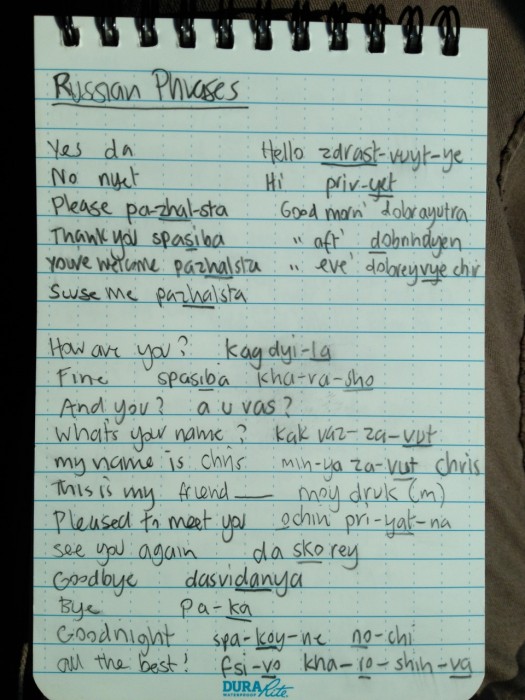 Russian Phrases
Yes da Hello zdrast-vuyt-ye
No nyet Hi priv-yet
Please pa-zhal-sta Good morn' dobrayutra
Thank you spasiba " aft' dobnhdyen
You're welcome pazhalsta " eve' dobreyvye chir
Swse me pazhalsta
How are you? kagdyi-la
Fine spasiba kha-ra-sho
And you? a u vas?
What's your name? kak vaz-za-vut
my name is chris min-ya za-vut chris
This is my friend ___ moy druk (m)
Pleased to meet you ochin pri-yat-na
see you again da skorey
Goodbye dasvidanya
Bye pa-ka
Goodnight spa-koy-ne no-chi
all the best! fsi-vo kha-ro-shih-va
DURARite
WATERPROOF